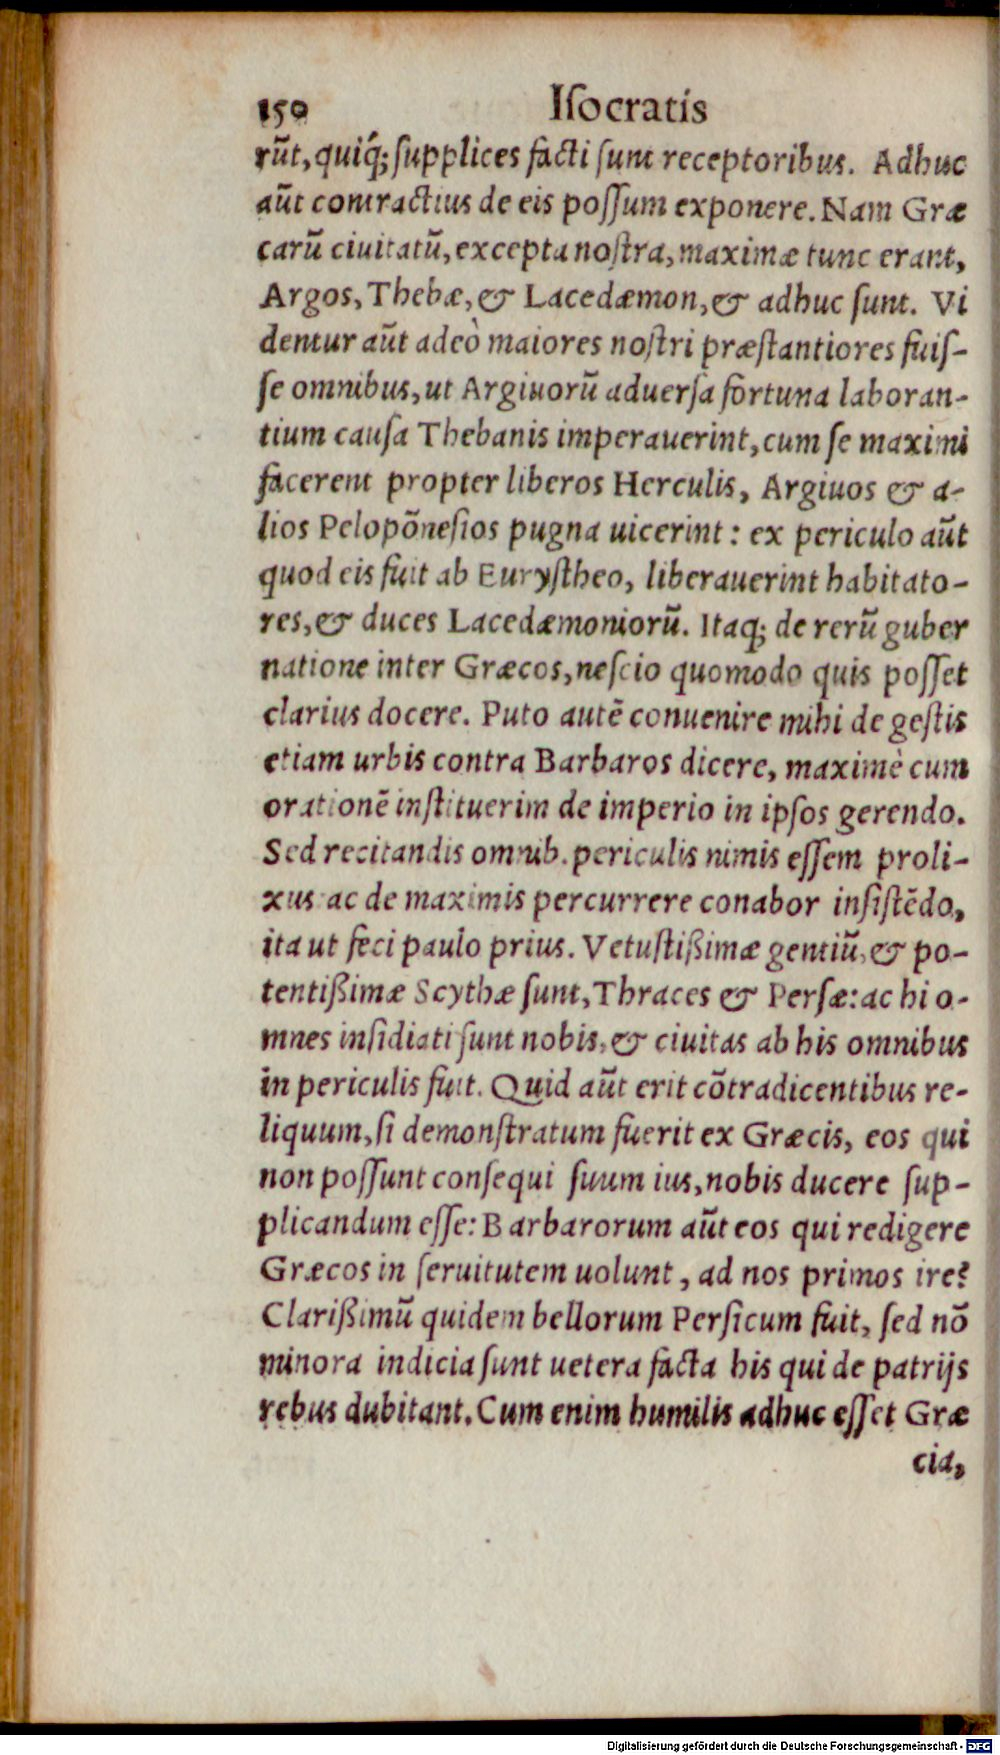 150 Iſocratis
rūt, quiq́; ſupplices facti ſunt receptoribus. Adhuc
aūt contractius de eis poſſum exponere. Nam Græ
carū ciuitatū, excepta noſtra, maximæ tunc erant,
Argos, Thebæ, & Lacedæmon, & adhuc ſunt. Vi
dentur aūt adeò maiores noſtri præſtantiores fuiſ-
ſe omnibus, ut Argiuorū aduerſa fortuna laboran-
tium cauſa Thebanis imperauerint, cum ſe maximi
facerent propter liberos Herculis, Argiuos & a-
lios Pelopōneſios pugna uicerint: ex periculo aūt
quod eis fuit ab Euryſtheo, liberauerint habitato-
res, & duces Lacedæmoniorū. Itaq; de rerū guber
natione inter Græcos, neſcio quomodo quis poſſet
clarius docere. Puto autē conuenire mihi de geſtis
etiam urbis contra Barbaros dicere, maximè cum
orationē inſtituerim de imperio in ipſos gerendo.
Sed recitandis omnib. periculis nimis eſſem proli-
xus: ac de maximis percurrere conabor inſiſtēdo,
ita ut feci paulo prius. Vetuſtißimæ gentiū, & po-
tentißimæ Scythæ ſunt, Thraces & Perſæ: ac hi o-
mnes inſidiati ſunt nobis, & ciuitas ab his omnibus
in periculis fuit. Quid aūt erit cōtradicentibus re-
liquum, ſi demonſtratum fuerit ex Græcis, eos qui
non poſſunt conſequi ſuum ius, nobis ducere ſup-
plicandum eſſe: Barbarorum aūt eos qui redigere
Græcos in ſeruitutem uolunt, ad nos primos ire?
Clarißimū quidem bellorum Perſicum fuit, ſed nō
minora indicia ſunt uetera facta his qui de patrijs
rebus dubitant. Cum enim humilis adhuc eſſet Græ
cia,
Digitalisierung gefördert durch die Deutsche Forschungsgemeinschaft - DFG